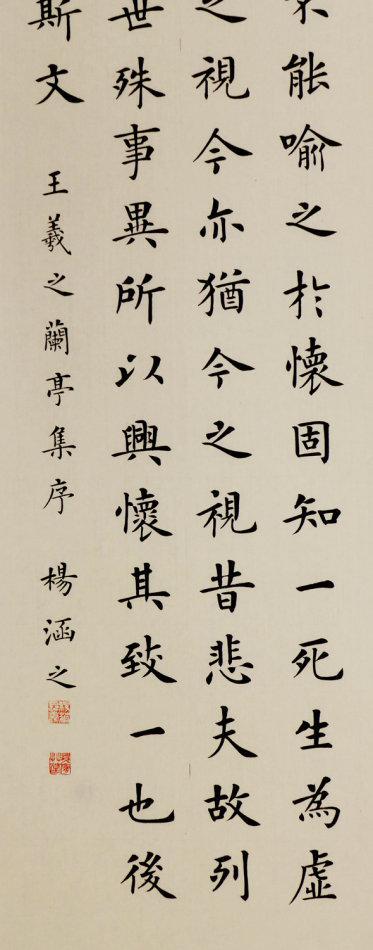 不能喻之於懷固知一死生為虛
之視今亦猶今之視昔悲夫故列
世殊事異所以興懷其致一也後
斯文
王羲之蘭亭集序 楊涵之